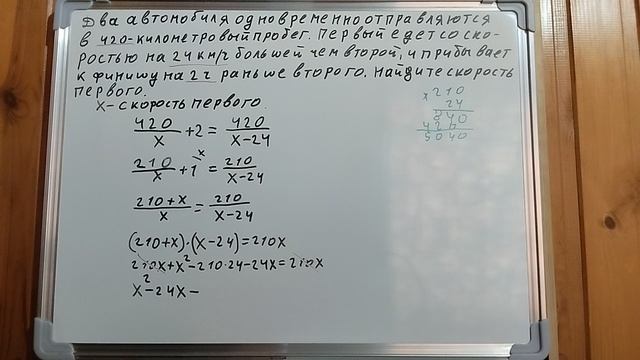 Два автомобиля одновременно отправляются
в 420-километровый пробег. Первый едет со ско-
ростью на 24 км/ч большей чем второй, и прибывает
к финишу на 2 ч раньше второго. Найдите скорость
первого.
X - скорость первого
420/x + 2 = 420/x-24
210/x + 1^x = 210/x-24
210+x/x = 210/x-24
(210+x)·(x-24)=210x
210x+x²-210·24-24x=210x
x²-24x-
× 210
24
840
420
5040